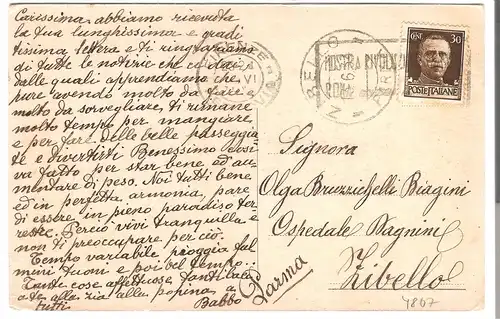 Carissima abbiamo ricevuta
la tua lunghissima e gradi
tissima lettera e ti ringraziamo
di tutte le notizie che ci dai
dalle quali apprendiamo che
pure avendo molto da fare e
molto da sorvegliare ti rimane
molto tempo per mangiare
e per fare delle belle passeggia
te e divertirti Benessimo così
va fatto per star bene ed au-
mentare di peso. Noi tutti bene
ed in perfetta armonia, pare
di essere in pieno paradiso ter
restre. Perciò vivi tranquilla e
non ti preoccupare per ciò.
Tempo variabile, pioggia ful
mini tuoni e poi bel tempo...
Tante cose affettuose tanti baci
a te alla zia alla popina a
tutti
Babbo
ZIBELLO
PARMA
MOSTRA
ROMA
CENT 30
POSTE ITALIANE
Signora
Olga Bruzzichelli Biagini
Ospedale Magnini
Zibello
Parma
4807